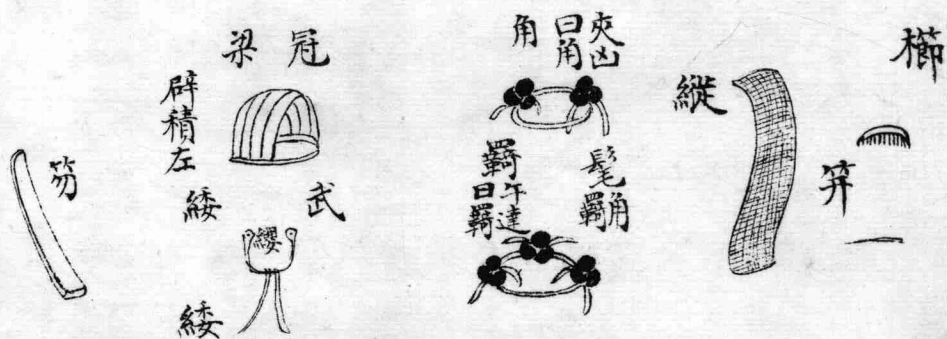 櫛
笄
縰
夾囟
曰角
角
髦
羈角
羈午達
曰羈
冠
梁
辟積左
武
緌
纓
緌
笏